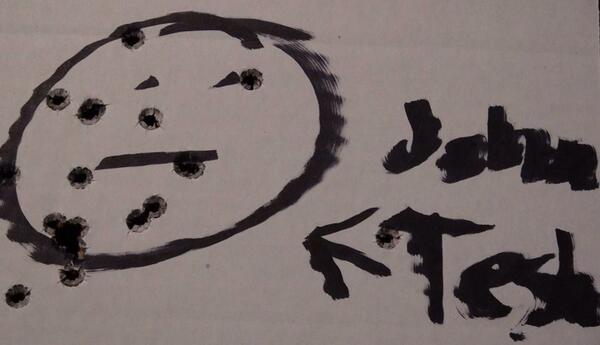 John
Test